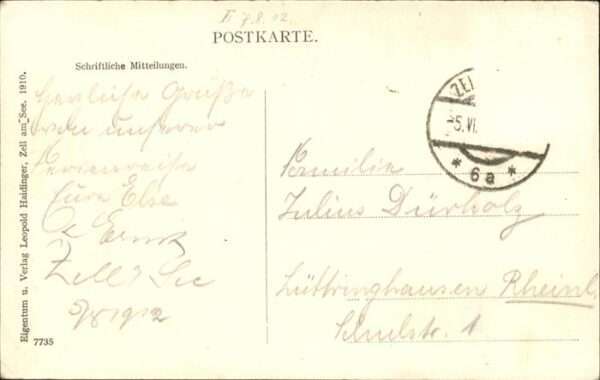 II 7.8.12
POSTKARTE.
Schriftliche Mitteilungen.
Eigentum u. Verlag Leopold Haidinger, Zell am See. 1910.
7735
Herzliche Grüße
von unserer
Ferienreise
Eure Else
Ernst
Zell a/ See
5/8 1912
ZEL
5.VI
* 6a *
Familie
Julius Dürholz
Lüttringhausen Rheinl.
Schulstr. 1